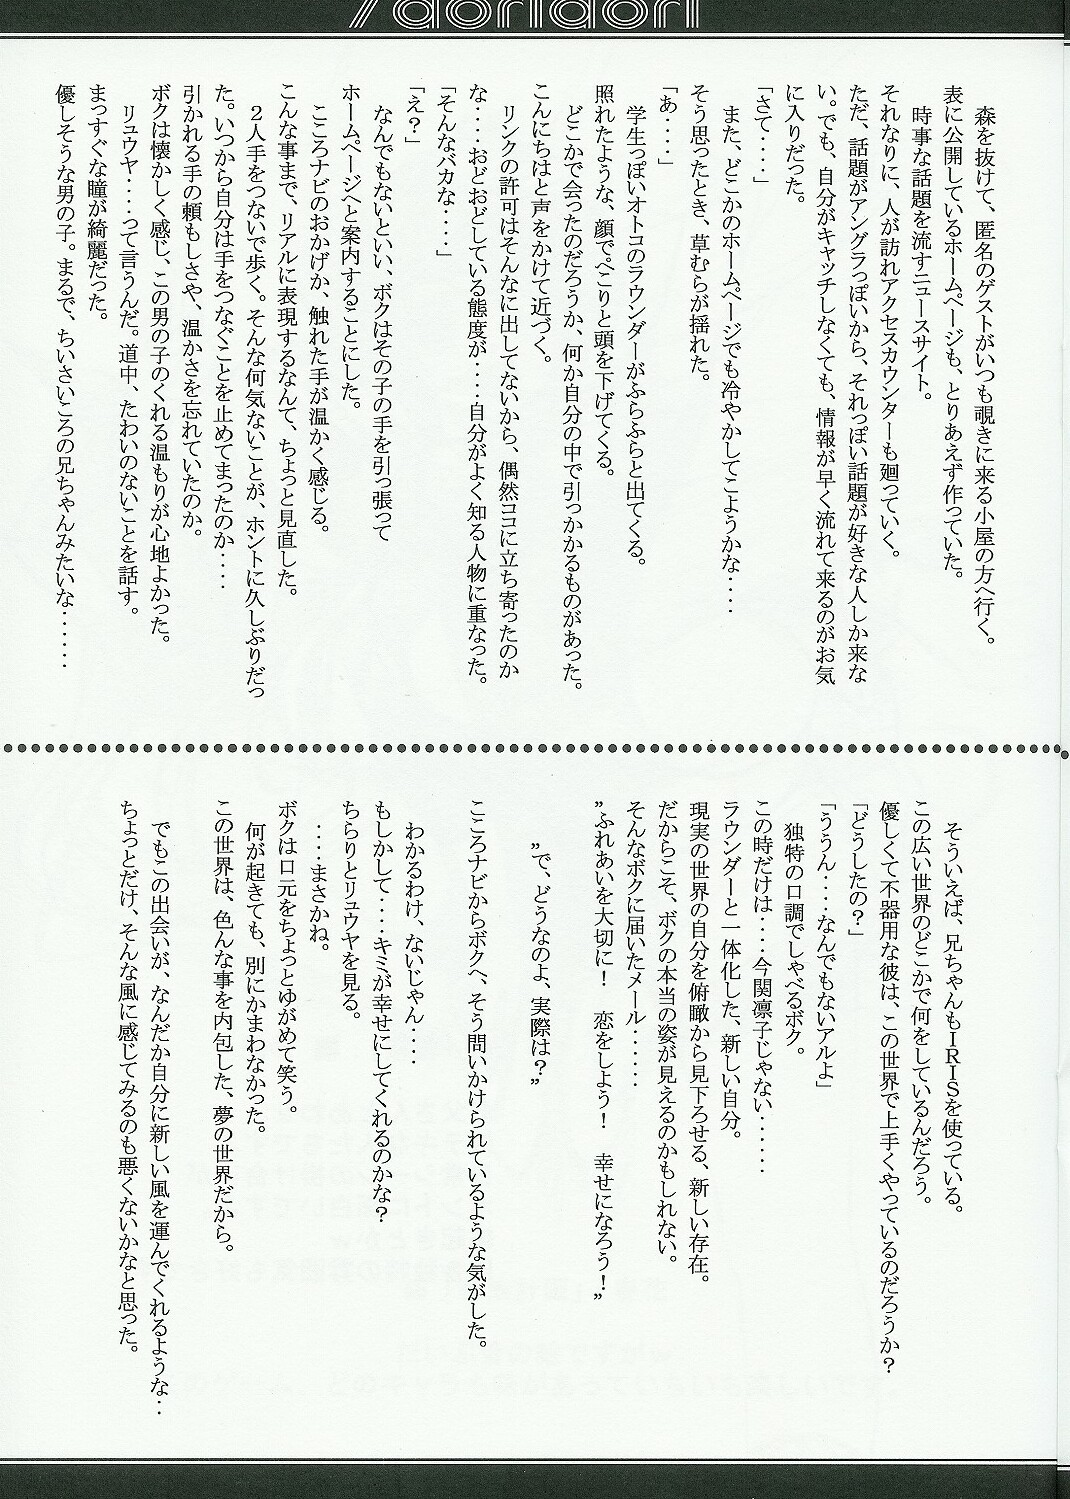 7dоridоri
森を抜けて、匿名のゲストがいつも覗きに来る小屋の方へ行く。
表に公開しているホームページも、とりあえず作っていた。
時事な話題を流すニュースサイト。
それなりに、人が訪れアクセスカウンターも廻っていく。
ただ、話題がアングラっぽいから、それっぽい話題が好きな人しか来な
い。でも、自分がキャッチしなくても、情報が早く流れて来るのがお気
に入りだった。
「さて・・・・」
また、どこかのホームページでも冷やかしてこようかな・・・・
そう思ったとき、草むらが揺れた。
「あ・・・・」
学生っぽいオトコのラウンダーがふらふらと出てくる。
照れたような、顔でぺこりと頭を下げてくる。
どこかで会ったのだろうか、何か自分の中で引っかかるものがあった。
こんにちはと声をかけて近づく。
リンクの許可はそんなに出してないから、偶然ココに立ち寄ったのか
な・・・・おどおどしている態度が・・・・自分がよく知る人物に重なった。
「そんなバカな・・・・」
「え？」
なんでもないといい、ボクはその子の手を引っ張って
ホームページへと案内することにした。
こころナビのおかげか、触れた手が温かく感じる。
こんな事まで、リアルに表現するなんて、ちょっと見直した。
２人手をつないで歩く。そんな何気ないことが、ホントに久しぶりだっ
た。いつから自分は手をつなぐことを止めてまったのか・・・・
引かれる手の頼もしさや、温かさを忘れていたのか。
ボクは懐かしく感じ、この男の子のくれる温もりが心地よかった。
リュウヤ・・・・って言うんだ。道中、たわいのないことを話す。
まっすぐな瞳が綺麗だった。
優しそうな男の子。まるで、ちいさいころの兄ちゃんみたいな・・・・・・
そういえば、兄ちゃんもＩＲＩＳを使っている。
この広い世界のどこかで何をしているんだろう。
優しくて不器用な彼は、この世界で上手くやっているのだろうか？
「どうしたの？」
「ううん・・・・なんでもないアルよ」
独特の口調でしゃべるボク。
この時だけは・・・・今関凛子じゃない・・・・・・
ラウンダーと一体化した、新しい自分。
現実の世界の自分を俯瞰から見下ろせる、新しい存在。
だからこそ、ボクの本当の姿が見えるのかもしれない。
そんなボクに届いたメール・・・・・・
”ふれあいを大切に！　恋をしよう！　幸せになろう！”
”で、どうなのよ、実際は？”
こころナビからボクへ、そう問いかけられているような気がした。
わかるわけ、ないじゃん・・・・
もしかして・・・・キミが幸せにしてくれるのかな？
ちらりとリュウヤを見る。
・・・・まさかね。
ボクは口元をちょっとゆがめて笑う。
何が起きても、別にかまわなかった。
この世界は、色んな事を内包した、夢の世界だから。
でもこの出会いが、なんだか自分に新しい風を運んでくれるような・・
ちょっとだけ、そんな風に感じてみるのも悪くないかなと思った。